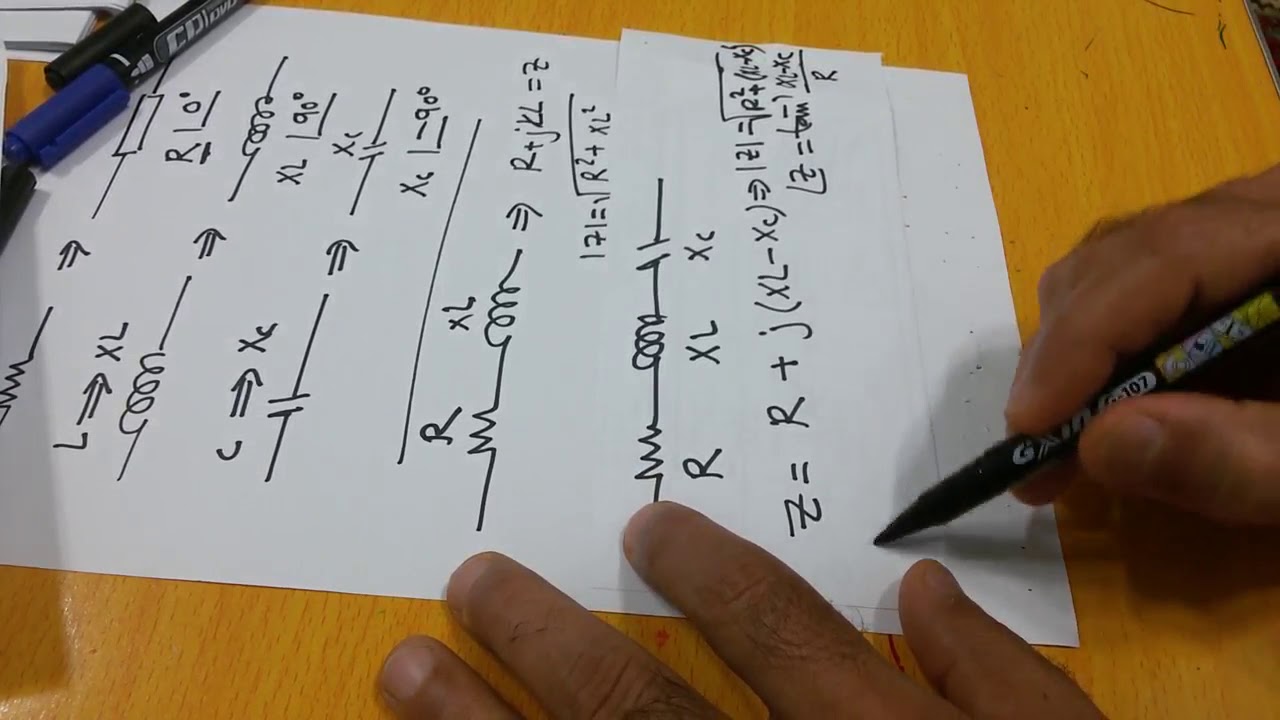 R |0°
L ⇒ XL
XL |90°
C ⇒ Xc
Xc
Xc |-90°
R
XL
⇒ R+jXL=Z
|Z|=√R²+XL²
R XL Xc
Z = R + j(XL-Xc) ⇒ |Z|=√R²+(XL-Xc)
∠Z = tan⁻¹ XL-Xc
R
CD/DVD
G-107